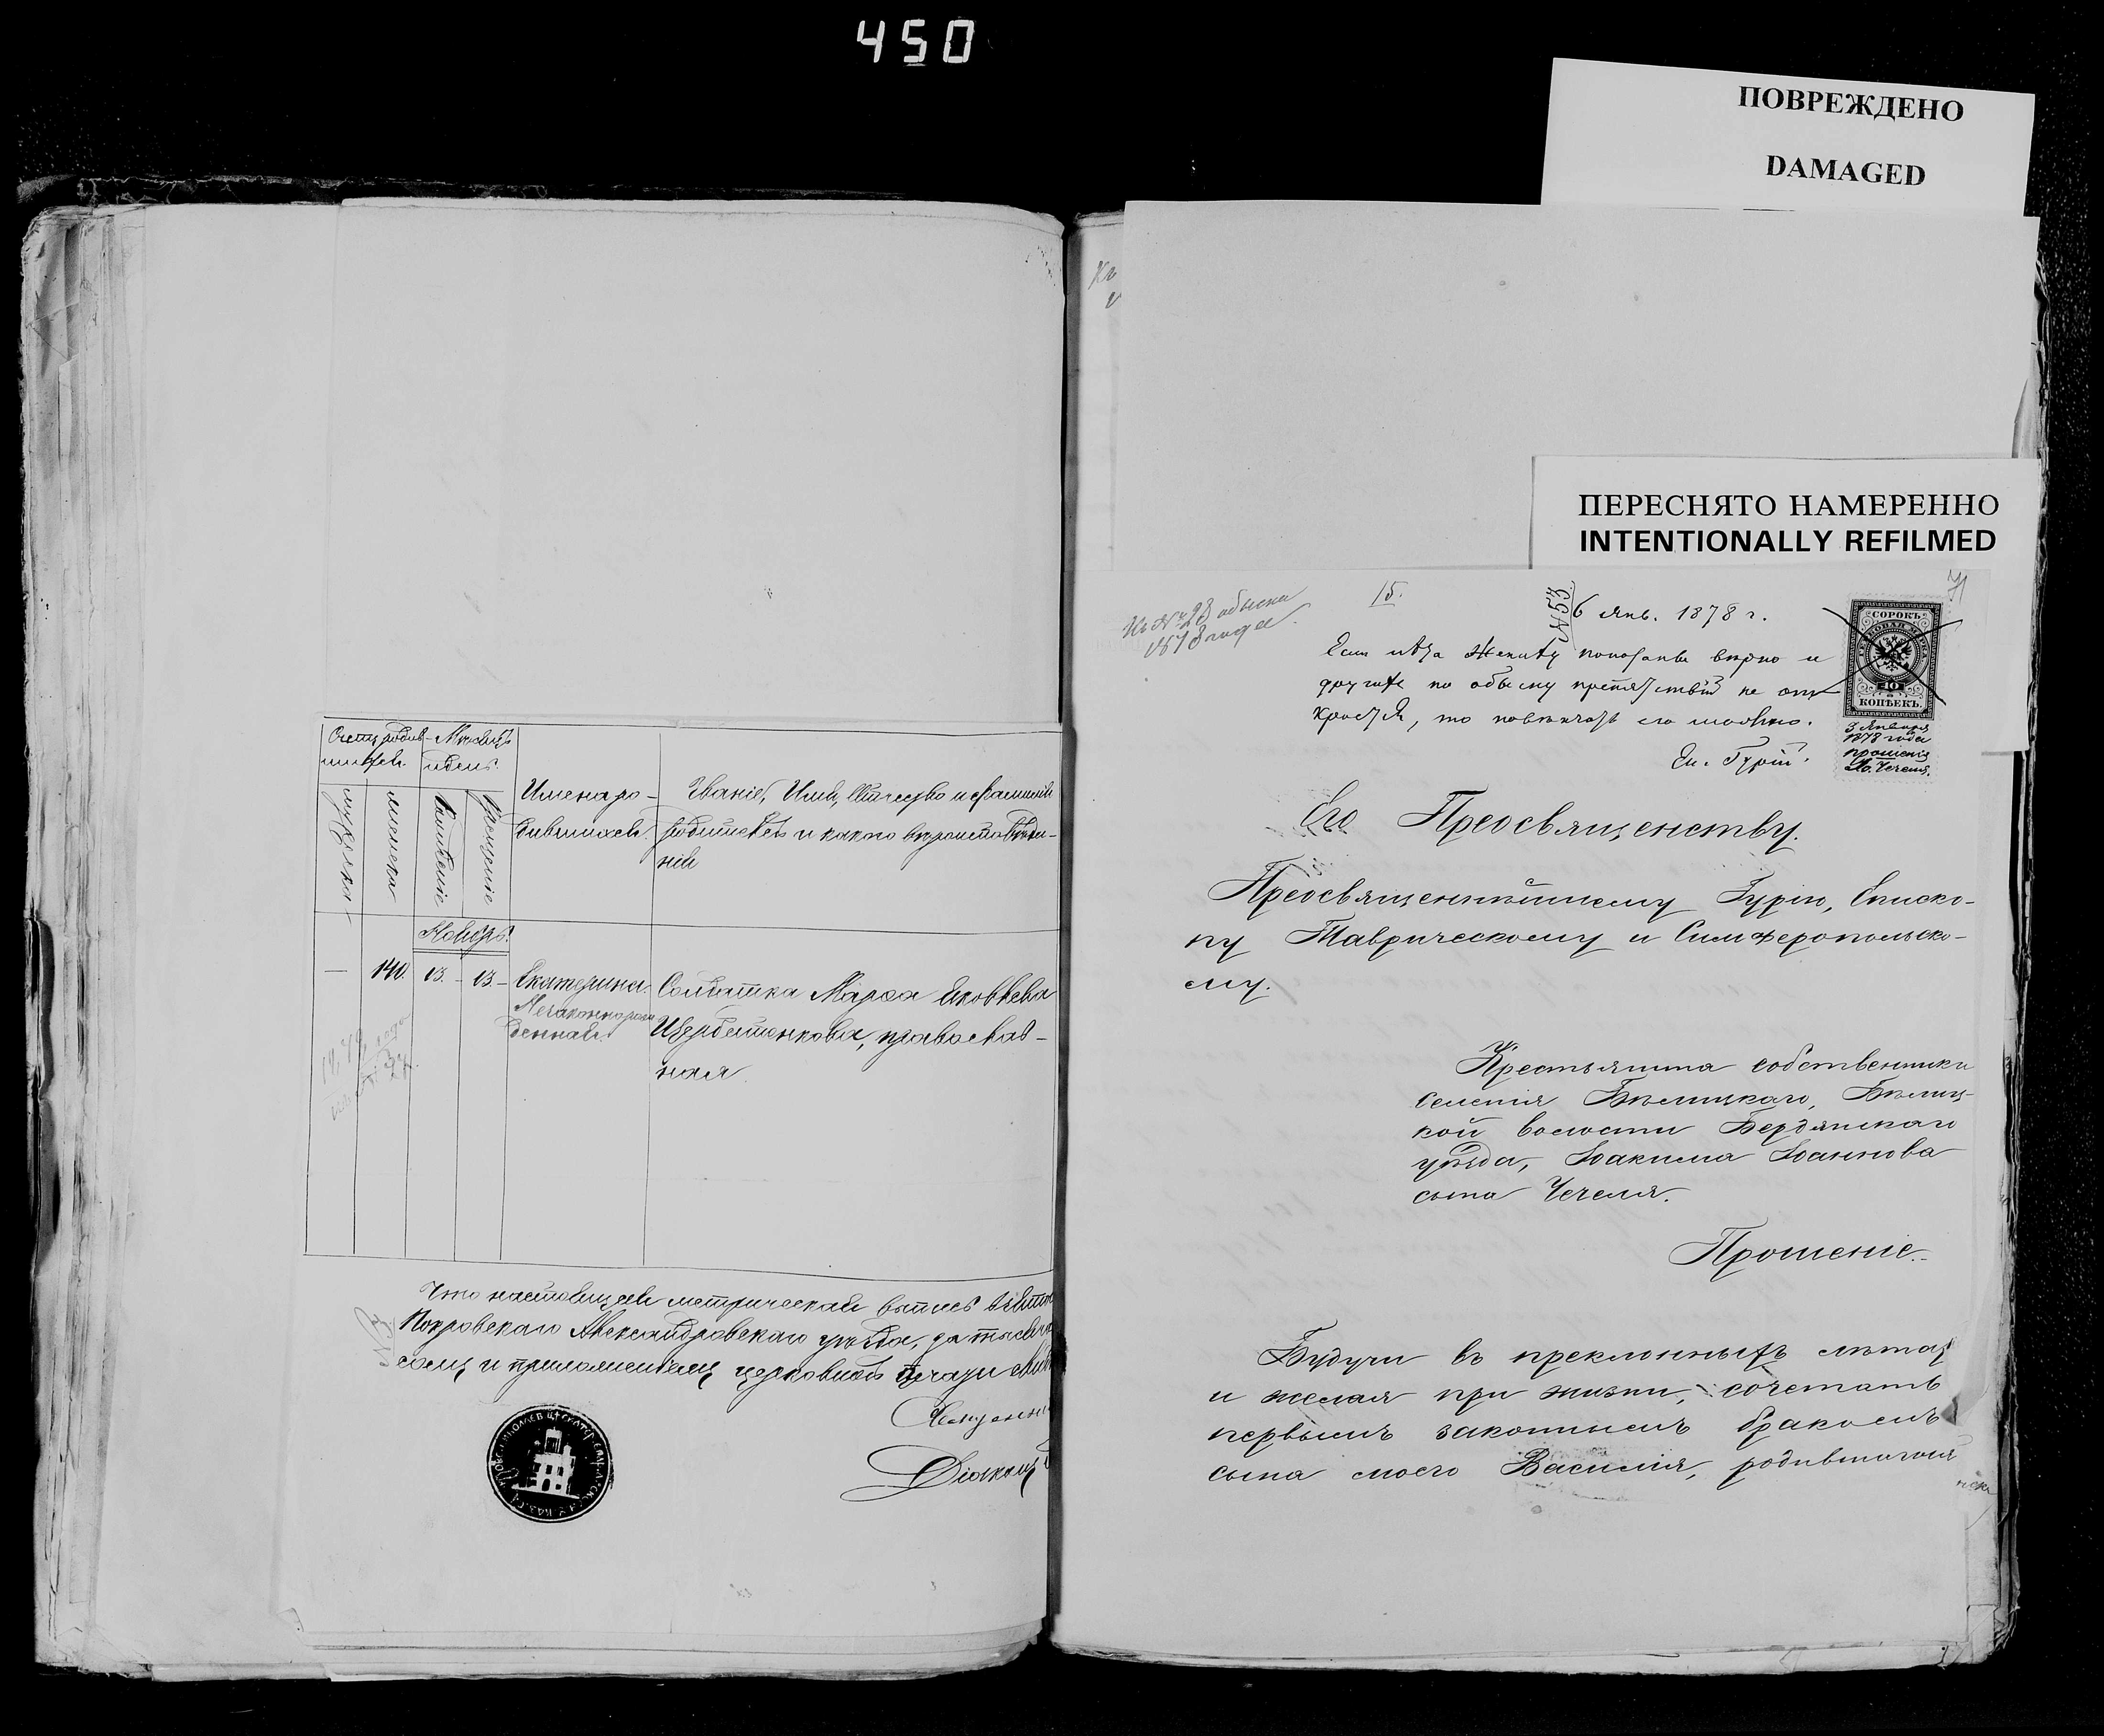 450
ПОВРЕЖДЕНО
DAMAGED
ПЕРЕСНЯТО НАМЕРЕННО
INTENTIONALLY REFILMED
Счетъ родив-
шихся.
Мѣсяцъ
и день.
мужеска
женска
Рожденіе
Крещеніе
Имена ро-
дившихся.
Званіе, Имя, Отчество и фамилія
родителей и какого вѣроисповѣда-
нія
Ноябрь.
—
140.
13.
13.
Екатерина.
Незаконнорож
денная.
Солдатка Марѳа Яковлева
Щербатенкова, православ-
ная
Что настоящая метрическая выпись
Покровскаго Александровскаго уѣзда, за
и приложеніемъ церковной печати
Діаконъ
Къ № 28 обыска
1878 года.
15.
№ 53.
71
6 Янв. 1878 г.
Если лѣта Жениху показаны вѣрно и
другихъ по обыску препятствій не от
кроется, то повѣнчать его можно.
Еп. Гурій.
СОРОКЪ
ГЕРБОВАЯ МАРКА
40
КОПѢЕКЪ.
3 Января
1878 года
прошенія
Чечеля.
Его Преосвященству.
Преосвященнѣйшему Гурію, Еписко-
пу Таврическому и Симферопольско-
му.
Крестьянина собственника
селенія Бѣлицкаго, Бѣлиц-
кой волости Бердянскаго
уѣзда, Іоакима Іоаннова
сына Чечеля.
Прошеніе.
Будучи въ преклонныхъ лѣтах
и желая при жизни, сочетать
первымъ законнымъ бракомъ
сына моего Василія, родившагося